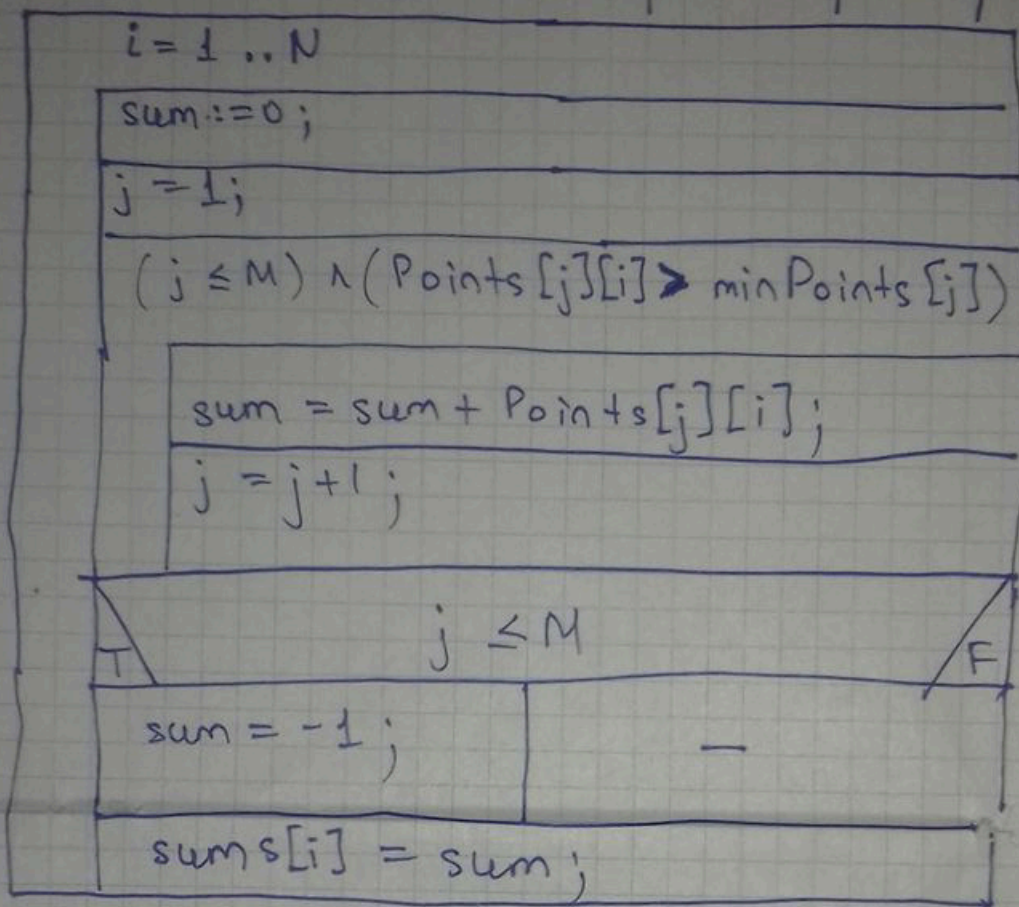 i = 1 .. N
sum := 0 ;
j = 1;
(j ≤ M) ∧ (Points[j][i] > minPoints[j])
sum = sum + Points[j][i] ;
j = j+1 ;
j ≤ M
T
F
sum = -1 ;
—
sums[i] = sum ;